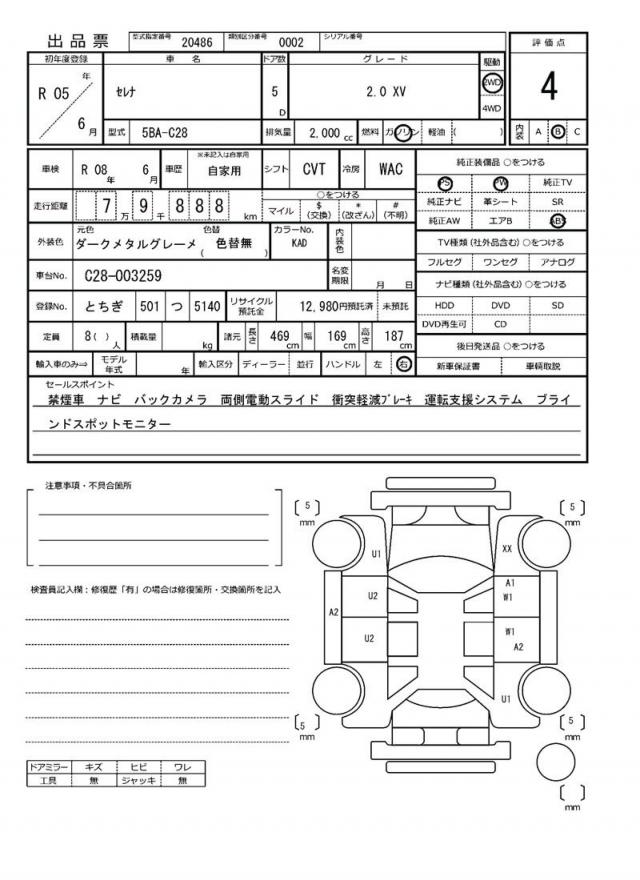 出品票 型式指定番号 20486 類別区分番号 0002 シリアル番号
評価点
4
初年度登録 車名 ドア数 グレード 駆動
R 05 年 6 月 セレナ 5 D 2.0 XV 2WD 4WD
型式 5BA-C28 排気量 2,000 cc 燃料 ガソリン 軽油 ( )
内装 A B C
車検 R 08 年 6 月 車歴 ※未記入は自家用 自家用 シフト CVT 冷房 WAC
走行距離 7 万 9 千 8 8 8 km
○をつける
マイル $ (交換) * (改ざん) # (不明)
外装色 元色 ダークメタルグレーメ 色替 ( 色替無 ) カラーNo. KAD 内装色
車台No. C28-003259 名変期限 月 日
登録No. とちぎ 501 つ 5140 リサイクル預託金 12,980円預託済 未預託
定員 8( ) 人 積載量 kg 諸元 長さ 469 cm 幅 169 cm 高さ 187 cm
輸入車のみ⇒ モデル年式 年 輸入区分 ディーラー 並行 ハンドル 左 右
純正装備品 ○をつける
PS PW 純正TV
純正ナビ 革シート SR
純正AW エアB ABS
TV種類 (社外品含む) ○をつける
フルセグ ワンセグ アナログ
ナビ種類 (社外品含む) ○をつける
HDD DVD SD
DVD再生可 CD
後日発送品 ○をつける
新車保証書 車輌取説
セールスポイント
禁煙車 ナビ バックカメラ 両側電動スライド 衝突軽減ブレーキ 運転支援システム ブライ
ンドスポットモニター
注意事項・不具合箇所
検査員記入欄：修復歴「有」の場合は修復箇所・交換箇所を記入
ドアミラー キズ ヒビ ワレ
工具 無 ジャッキ 無
[ 5 ] mm
[ 5 ] mm
U1
XX
A1
W1
U2
A2
U2
W1
A2
U1
[ 5 ] mm
[ 5 ] mm
[ ] mm